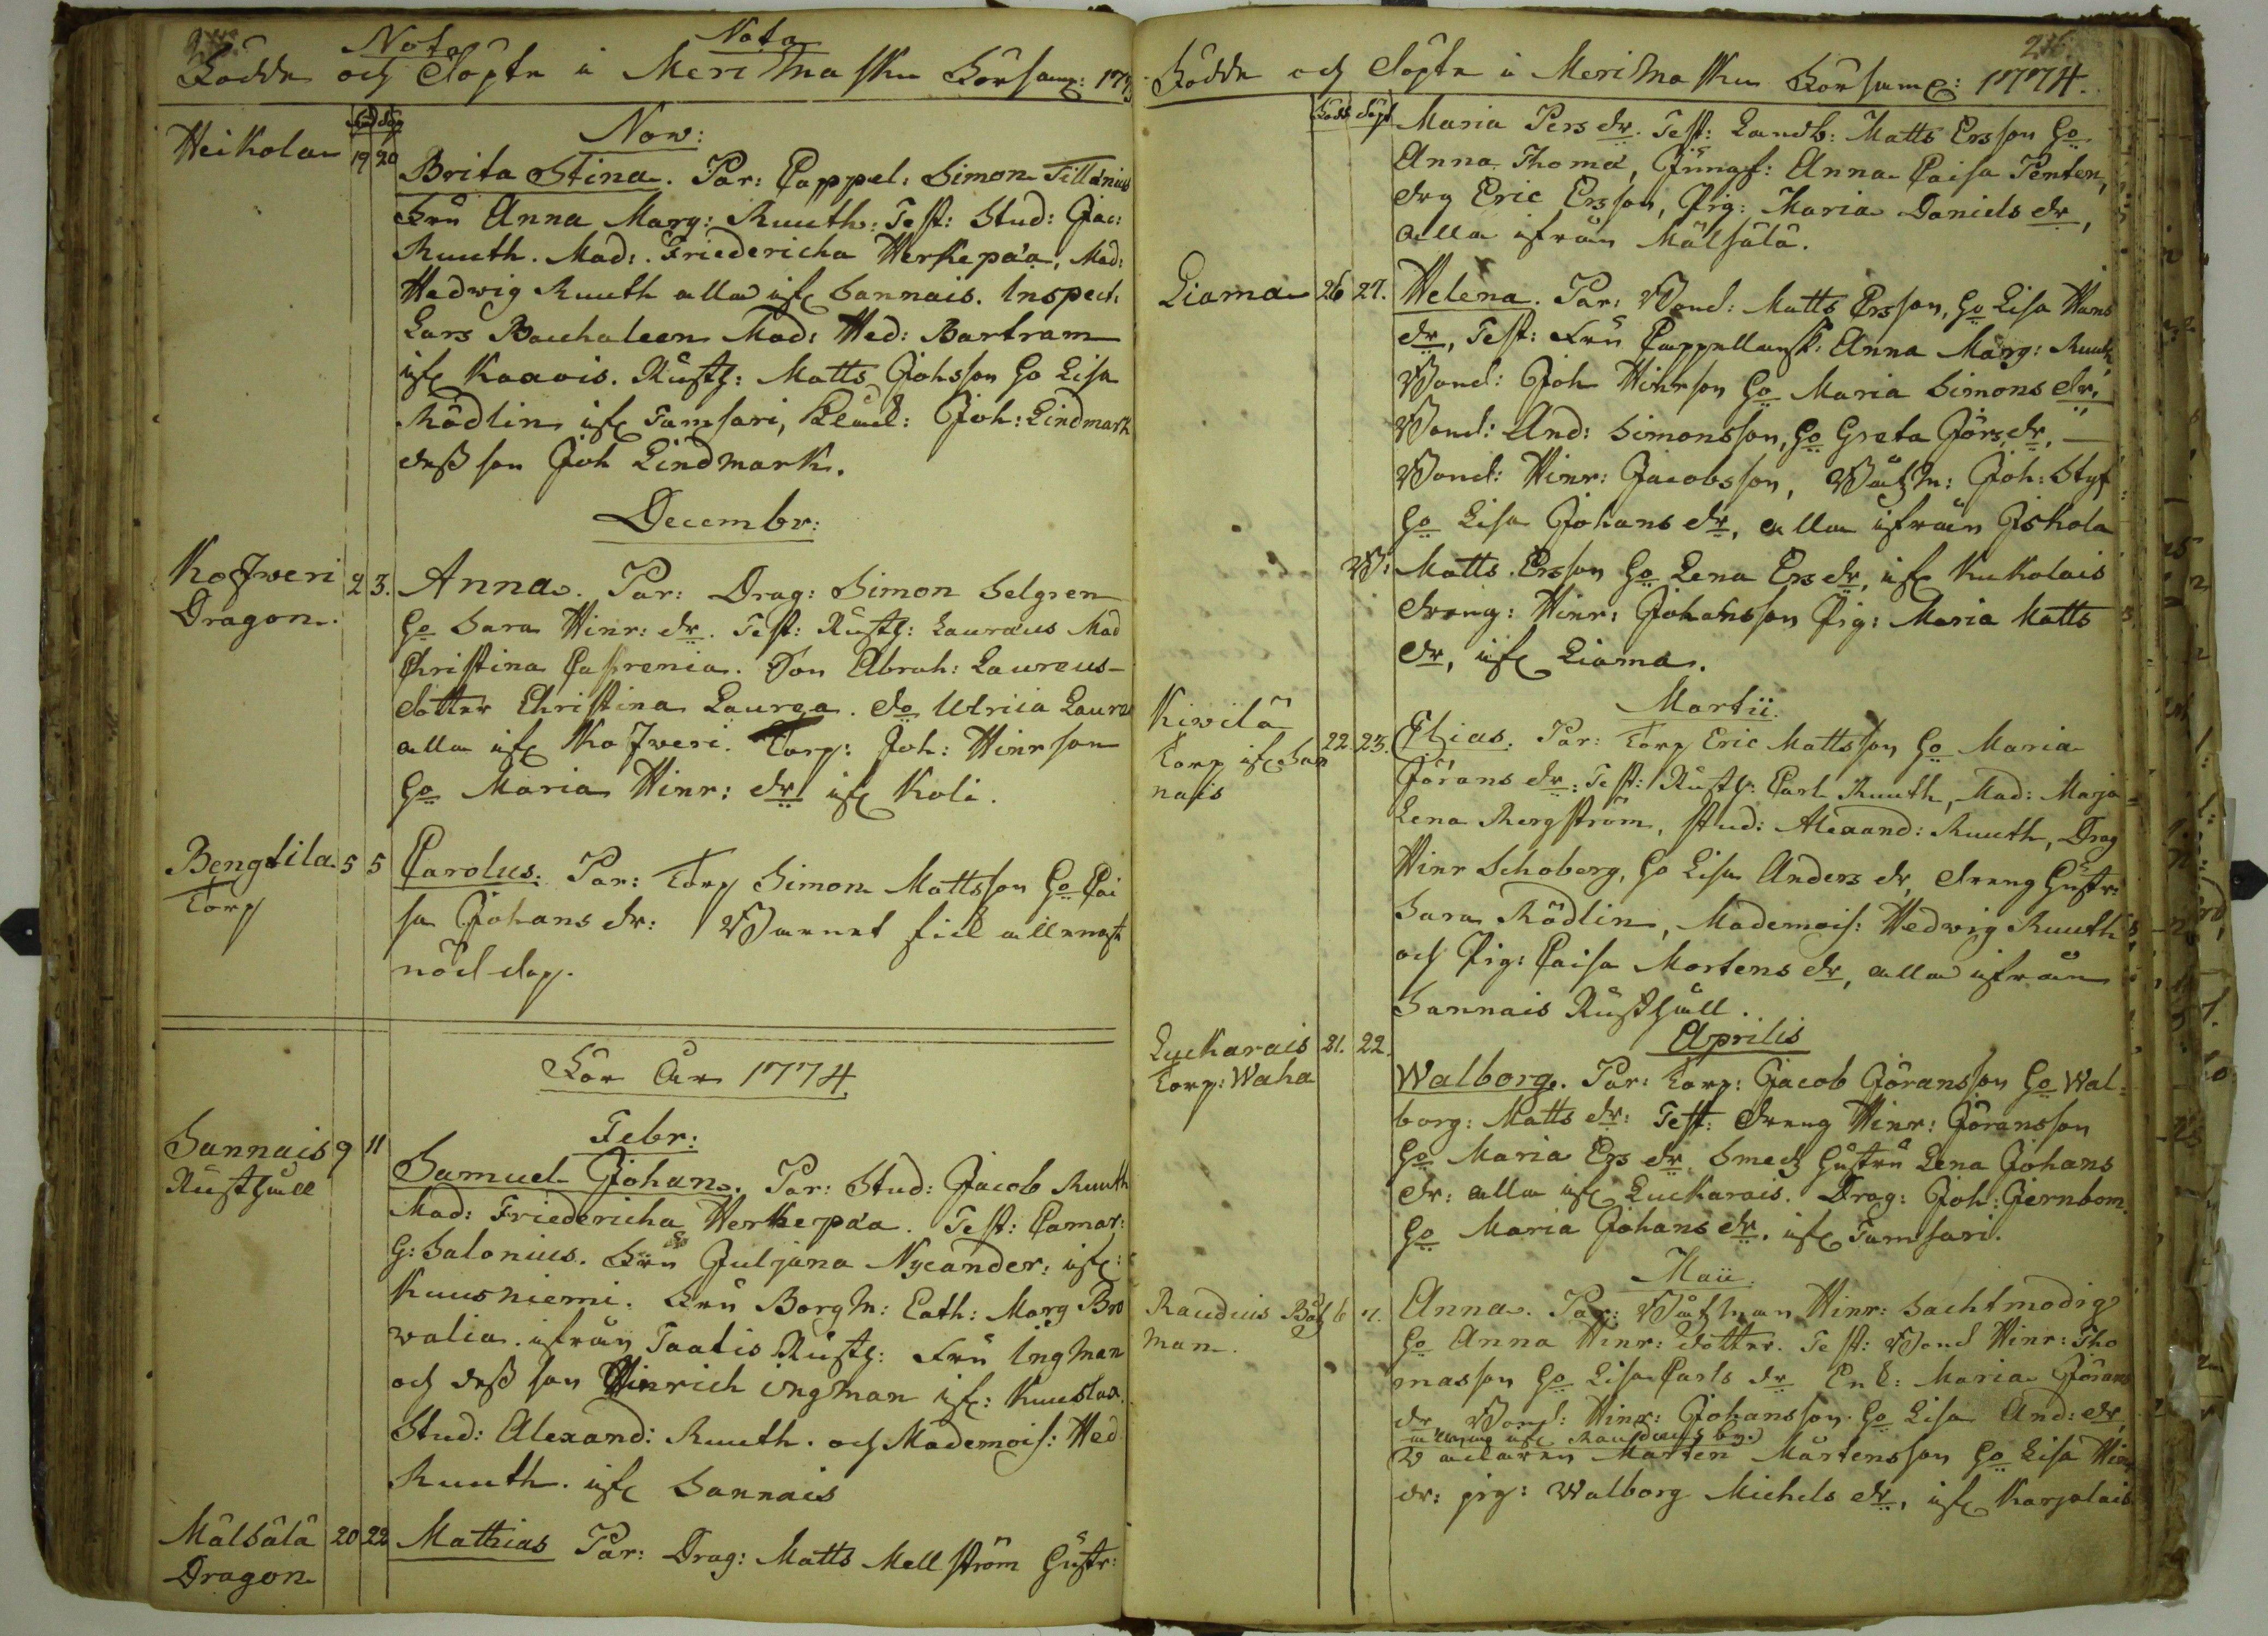 Nota Nota
Födde och Döpte i Merimasku Församl: 1773
Född Döpt
Now:
Heikola 19 20 Brita Stina. Par: Cappel: Simon Tillænius
Fru Anna Marg: Ruuth. Test: Stud: Jac:
Ruuth. Mad: Friedericha Herkepæa, Mad:
Hedwig Ruuth alla ifr Sannais. Inspect:
Lars Mad: Hed: Bartram
ifr Kaxois. Rusth: Matts Johsson Ho Lisa
Rödlin ifr Tamsari, Joh: Lindmark
dess son Joh Lindmark.
Decembr:
Koiweri 2 3. Anna. Par: Drag: Simon Selgren
Dragon. Ho Sara Hinr: dr. Test: Rusth: Lauræus Mad
Christina Son Abrah: Laureus
dotter Christina Lauræa. do Ulrica Lauræ
alla ifr Koiweri. Torp: Joh: Hinrson
Ho Maria Hinr: dr ifr Koli.
Bengtila 5 5 Carolus. Par: Torp Simon Mattsson Ho Cai
Torp sa Johans dr: Barnet fick allenast
nöddop.
För År 1774.
Febr:
Sannais 9 11 Samuel Johan. Par: Stud: Jacob Ruuth
Rusthåll Mad: Friedericha Herkepæa. Test: Camar:
G: Salonius. Fru Juljana Nycander: ifr:
Kuusniemi. Fru Borgm: Cath: Marg Bro
walia. ifrån Taatis Rusth: Fru Ingman
och dess son Hinrich ingman ifr: Kuuslax.
Stud: Alexand: Ruuth. och Mademois: Hed
Ruuth. ifr Sannais
Mälsälä 20 22 Mathias Par: Drag: Matts Mellström Hustr:
Dragon
216
Födde och Döpte i Merimasku Församl: 1774.
Född Döpt
Maria Pers dr. Test: Landb: Matts Ersson Ho
Anna Thomæ, Jungf: Anna Caisa Penten,
drg Eric Ersson, Pig: Maria Daniels dr,
alla ifrån Mälsälä.
Liama 26 27. Helena. Par: Bond: Matts Ersson, Ho Lisa Hans
dr, Test: Fru Cappellansk: Anna Marg: Ruuth
Bond: Joh Hinrson Ho Maria Simons dr.
Bond: And: Simonsson, Ho Greta Görs dr.
Bond: Hinr: Jacobsson, Båtzm: Joh: Styf
Ho Lisa Johans dr, alla ifrån Iskola
B: Matts Ersson Ho Lena Ers dr, ifr Kukolais
dreng: Hinr: Johansson Pig: Maria Matts
dr, ifr Liama.
Martii.
Kiwilä 22 23. Elias. Par: Torp Eric Mattsson Ho Maria
Torp ifr San Görans dr: Test: Rusth: Carl Ruuth, Mad: Maja
nais Lena Bergström, Stud: Alexand: Ruuth, Drag
Hinr Schoberg, Ho Lisa Anders dr, dreng Hustr:
Sara Rödlin, Mademois: Hedwig Ruuth
och Pig: Caisa Mortens dr, alla ifrån
Sannais Rusthåll.
Aprilis
Luckarais 21. 22. Walborg. Par: Torp: Jacob Göransson Ho Wal-
Torp: Waha borg: Matts dr: Test: dreng Hinr: Göransson
Ho Maria Ers dr. Smeds Hustru Lena Johans
dr: alla ifr Luckarais. Drag: Joh: Jernbom.
Ho Maria Johans dr. ifr Tamsari.
Maii.
Rauduis Båtz 6 7. Anna. Par: Båtzman Hinr: Sachtmodig
man. Ho Anna Hinr: dotter. Test: Bond Hinr: Tho
masson Ho Lisa Carls dr Enk: Maria Görans
dr Bond: Hinr: Johansson Ho Lisa And: dr,
ifr Rauduis by.
Mårten Mårtensson Ho Lisa Hinr
dr: pig: Walborg Michels dr, ifr Karjalais